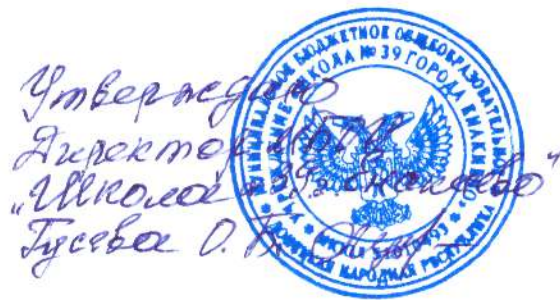 Утверждаю
Директор МБОУ
"Школа №39 г. Енакиево"
Гусева О. В.
МУНИЦИПАЛЬНОЕ БЮДЖЕТНОЕ ОБЩЕОБРАЗОВАТЕЛЬНОЕ
УЧРЕЖДЕНИЕ ШКОЛА № 39 ГОРОДА
ДОНЕЦКАЯ НАРОДНАЯ РЕСПУБЛИКА